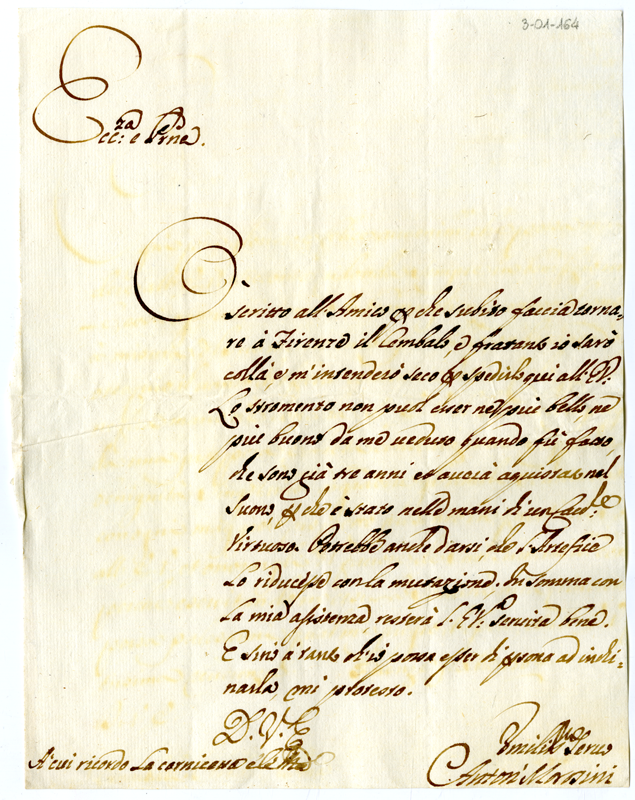 3-01-164
Ecc:za e
O scritto all'Amico che subito faccia torna,
re à Firenze il Cembalo, e fratanto io sarò
collà e m'intenderò seco spedirlo qui all'EV:
Lo stromento non può esser nè più bello, ne
più buono da me veduto quando fù fatto,
che sono già tre anni et avrà aquistato nel
suono che è stato nelle mani di un
Virtuoso. Potrebbe anche darsi che l'Artefice
lo riducesse con la mutazione. In somma con
la mia assistenza, resterà l'EV:a servita bene.
E sino à tanto ch'io possa esser di psona ad inchi-
narla, mi protesto.
D. V. E.
A' cui ricordo la
Umiliss. Servo
Anton